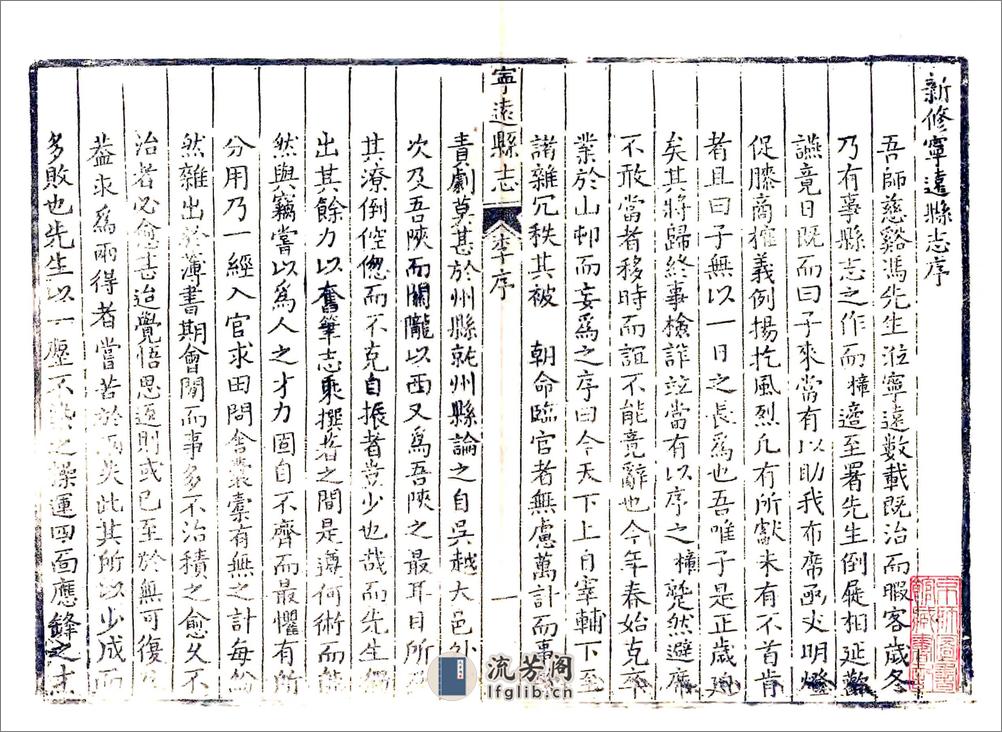 新修寧遠縣志序
吾師慈谿馮先生涖寧遠數載既治而暇客歲冬
乃有事縣志之作而 適至署先生倒屣相延歡
讌竟日既而曰子來當有以助我布席亟火明燈
促膝商榷義例揚扢風烈凡有所獻未有不首肯
者且曰子無以一日之長為也吾唯子是正歲
矣其將歸終事檢詐竝當有以序之 蹵然避席
不敢當者移時而誼不能竟辭也今年春始克卒
業於山邨而妄為之序曰今天下上自宰輔下至
諸雜冗秩其被 朝命臨官者無慮萬計而事
寧遠縣志
李序
一
責劇莫甚於州縣就州縣論之自吳越大邑外
次及吾陝而關隴以西又為吾陝之最耳目所
其潦倒倥傯而不克自振者豈少也哉而先生獨
出其餘力以奮筆志乘撰著之間是遵何術而能
然與竊嘗以為人之才力固自不齊而最懼有所
分用乃一經入官求田問舍囊橐有無之計每
然雜出於薄書期會閒而事多不治積之愈久不
治者必愈甚迨覺悟思返則或已至於無可復
葢求為兩得者嘗苦於兩失此其所以少成而
多敗也先生以一塵不染之操運四面應鋒之才
流芳阁
lfglib.cn
京師圖書館藏書印